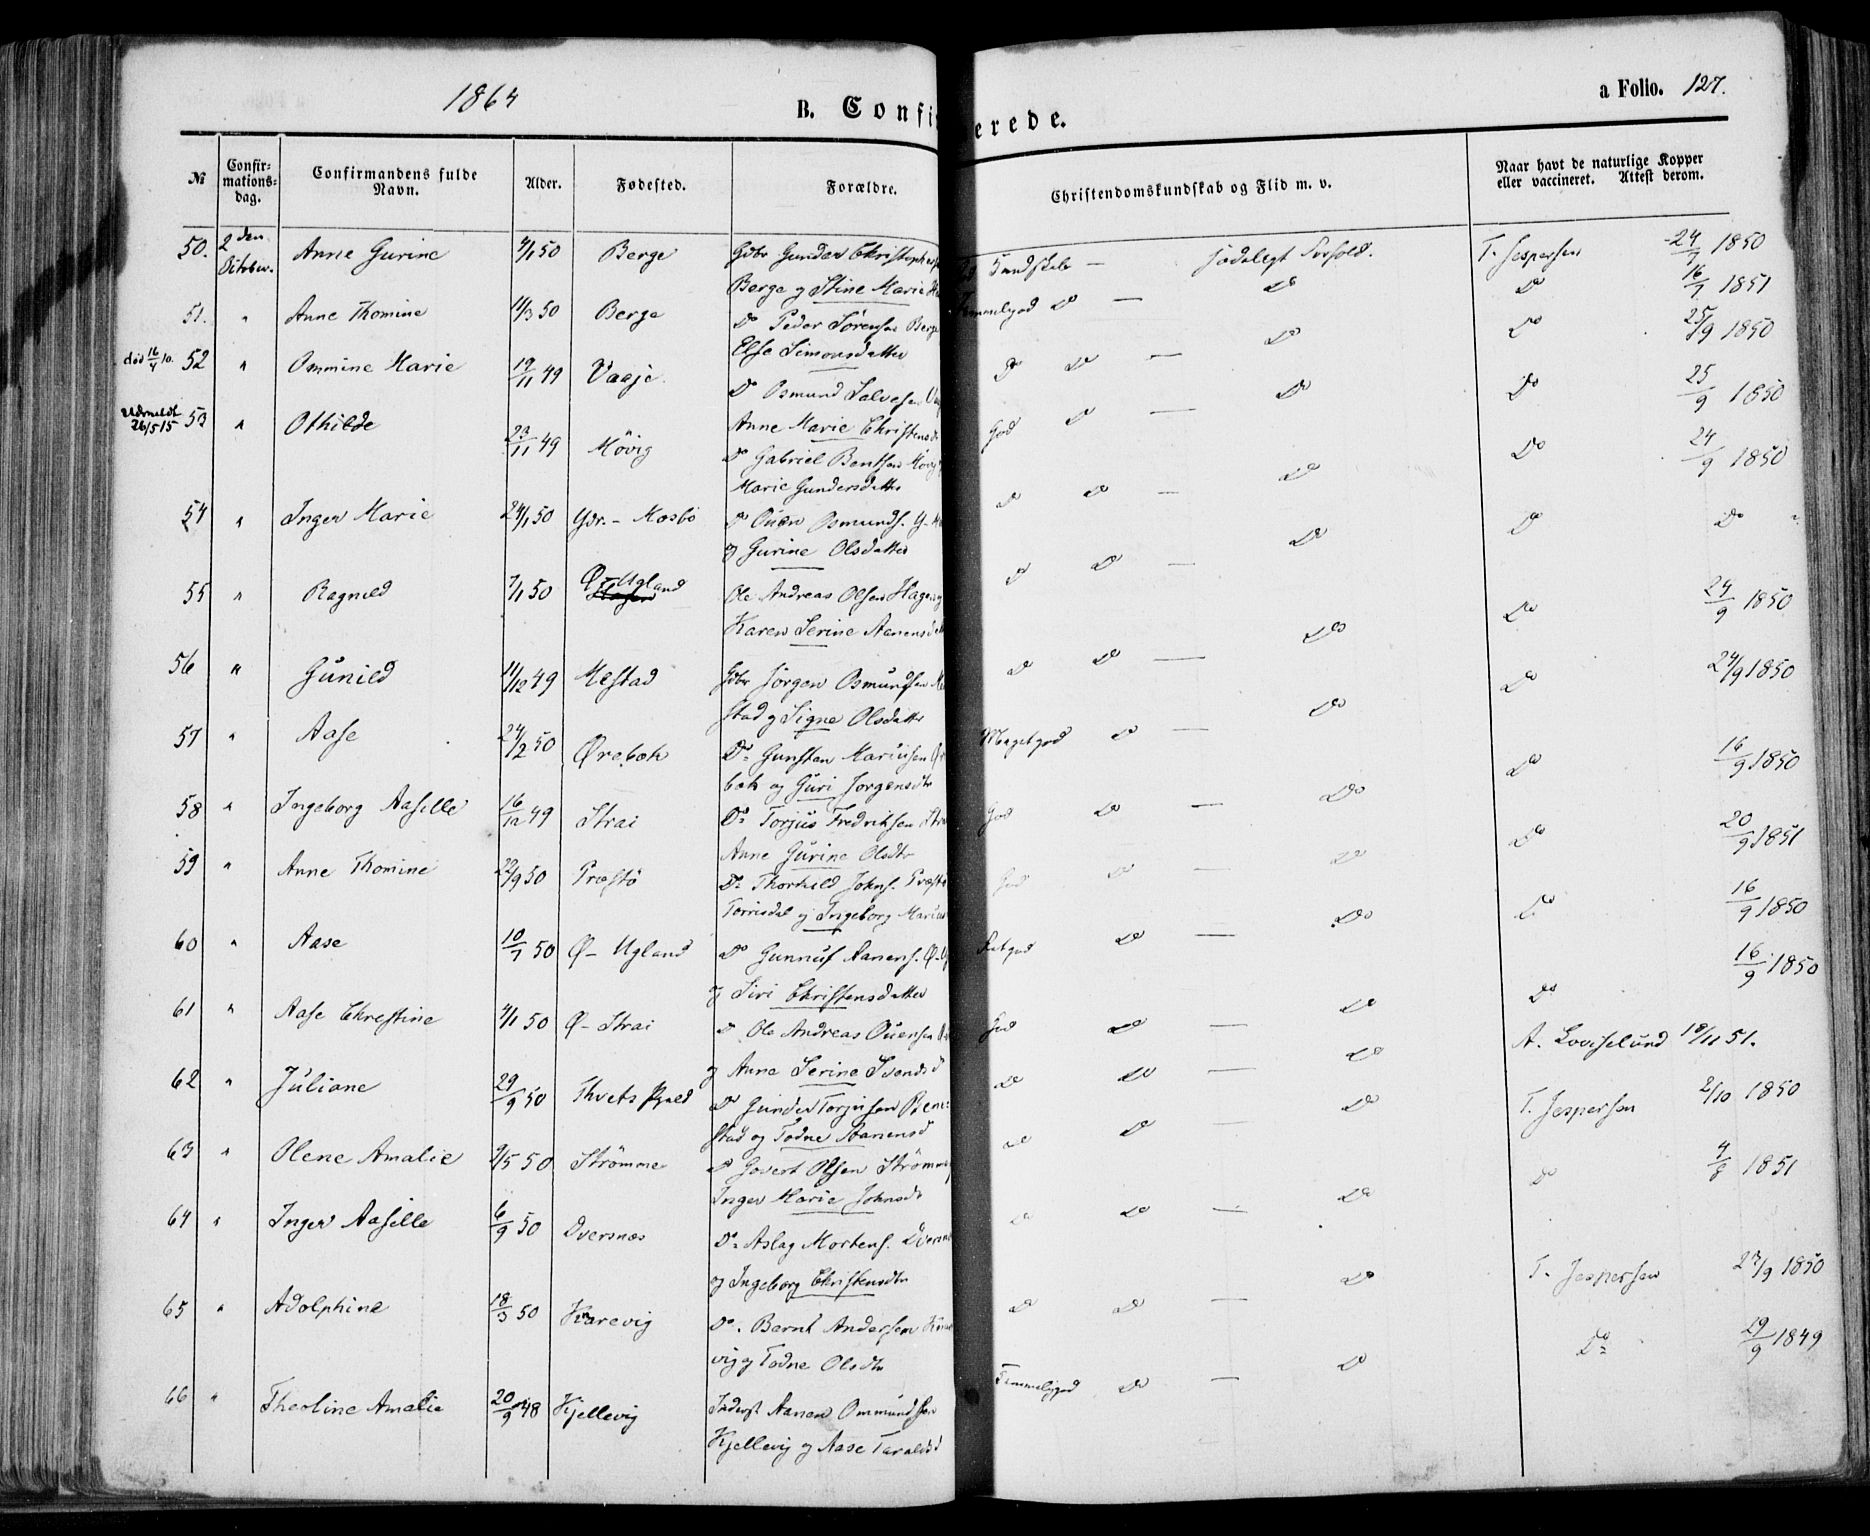 1864
B. Confi
erede.
a Folio. 127.
№
Confir-
mations-
dag.
Confirmandens fulde
Navn.
Alder.
Fødested.
Forældre.
Christendomskundskab og Flid m. v.
Naar havt de naturlige Kopper
eller vaccineret. Attest derom.
50. 2den Anne Gurine 4/1 50 Berge Gdbr Gunder Christophers Kundskab — sædeligt Forhold. T. Jespersen 24/7 1850
Oktober.
Berge og Stine Marie
51. " Anne Thomine 11/3 50 Berge Do Peder Sørensen Berge Temmeliggod Do — Do Do 16/7 1851
Else Simonsdatter
død 16/4 10. 52 " Ommine Marie 19/11 49 Vaaje. Do Osmund Salvesen Do Do — Do Do 25/9 1850
Anne Marie Christensd
Udmeldt
26/5 15 53 " Othilde 23/11 49 Møvig Do Gabriel Bentsen Møvig God Do — Do Do 25/9 1850
Marie Gundersdatter
54 " Inger Marie 24/1 50 Ydr. - Mosbö Do Ouen Osmunds. Y- Do Do — Do Do 24/9 1850
og Gurine Olsdatter
55 " Ragnild 7/1 50 Ø- Ugland Ole Andreas Olsen Hagen og Do Do — Do Do Do
Karen Serine Aanensd
56 " Gunild 11/12 49 Mestad Gdbr Jørgen Osmundsen Me Do Do — Do Do 24/9 1850
stad og Signe Olsdatter
57 " Aase 24/2 50 Ørebok Do Gunsten Mariusen Øre Megetgod Do — Do Do 24/9 1850
bok og Guri Jørgensdtr
58 " Ingeborg Aaselle 16/12 49 Strai Do Torjus Fredriksen Stra God Do — Do Do 16/9 1850
Anne Gurine Olsdtr
59 " Anne Thomine 22/9 50 Præstø Do Thorkild Johns. Præstø God Do — Do Do 20/9 1851
Torrisdal og Ingeborg Marius
60 " Aase 10/7 50 Ø- Ugland Do Gunnuf Aanens. Ø- Ug Do — Do Do 16/9 1850
og Siri Christensdatter
61 " Aase Christine 4/1 50 Ø- Strai Do Ole Andreas Ouensen God Do — Do Do 16/9 1850
og Anne Serine Svendsd
62 " Juliane 29/9 50 Thvets Do Gunder Torjusen Bene- Do Do — Do A. Loviselund 18/11 51.
stad og Todne Aanensd
63 " Olene Amalie 9/5 50 Strömme Do Govert Olsen Strömme Do Do — Do T. Jespersen 2/10 1850
Inger Marie Johnsdr
64 " Inger Aaselle 6/9 50 Dversnæs Do Aslag Mortens. Dversnæ Do Do — Do Do 4/8 1851
og Ingeborg Christensdtr
65 " Adolphine 18/3 50 Kvarevig Do. Bernt Andersen Do Do — Do T. Jespersen 23/9 1850
vig og Todne Olsdtr
66 " Theoline Amalie 20/9 48 Kjellevig Inderst Aanen Ommundsen Temmeliggod Do — Do Do 29/9 1849
Kjellevig og Aase Taraldsd